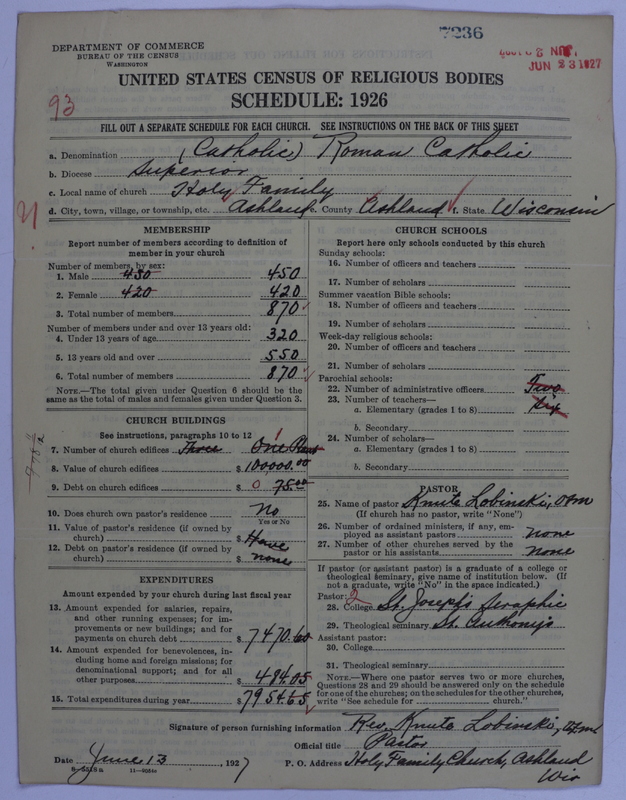 7236
JUN 23 1927
DEPARTMENT OF COMMERCE
BUREAU OF THE CENSUS
WASHINGTON
UNITED STATES CENSUS OF RELIGIOUS BODIES
SCHEDULE: 1926
93
FILL OUT A SEPARATE SCHEDULE FOR EACH CHURCH. SEE INSTRUCTIONS ON THE BACK OF THIS SHEET
a. Denomination (Catholic) Roman Catholic
b. Diocese Superior
c. Local name of church Holy Family
d. City, town, village, or township, etc. Ashland e. County Ashland f. State Wisconsin
MEMBERSHIP
Report number of members according to definition of
member in your church
Number of members, by sex:
1. Male 450 450
2. Female 420 420
3. Total number of members 870
Number of members under and over 13 years old:
4. Under 13 years of age 320
5. 13 years old and over 550
6. Total number of members 870
NOTE.—The total given under Question 6 should be the
same as the total of males and females given under Question 3.
CHURCH BUILDINGS
See instructions, paragraphs 10 to 12
7. Number of church edifices Three One
8. Value of church edifices $ 100000.00
9. Debt on church edifices $ 0 75.00
10. Does church own pastor's residence No
Yes or No
11. Value of pastor's residence (if owned by
church) $
12. Debt on pastor's residence (if owned by
church) $ none
EXPENDITURES
Amount expended by your church during last fiscal year
13. Amount expended for salaries, repairs,
and other running expenses; for im-
provements or new buildings; and for
payments on church debt $ 7470.60
14. Amount expended for benevolences, in-
cluding home and foreign missions; for
denominational support; and for all
other purposes $ 484.05
15. Total expenditures during year $ 7954.65
CHURCH SCHOOLS
Report here only schools conducted by this church
Sunday schools:
16. Number of officers and teachers
17. Number of scholars
Summer vacation Bible schools:
18. Number of officers and teachers
19. Number of scholars
Week-day religious schools:
20. Number of officers and teachers
21. Number of scholars
Parochial schools:
22. Number of administrative officers Two
23. Number of teachers—
a. Elementary (grades 1 to 8) Six
b. Secondary
24. Number of scholars—
a. Elementary (grades 1 to 8)
b. Secondary
PASTOR
25. Name of pastor Knute Lobinski, OFM
(If church has no pastor, write "None")
26. Number of ordained ministers, if any, em-
ployed as assistant pastors none
27. Number of other churches served by the
pastor or his assistants none
If pastor (or assistant pastor) is a graduate of a college or
theological seminary, give name of institution below. (If
not a graduate, write "No" in the space indicated.)
Pastor: 2
28. College St. Joseph's Seraphic
29. Theological seminary St. Anthony's
Assistant pastor:
30. College
31. Theological seminary
NOTE.—Where one pastor serves two or more churches,
Questions 28 and 29 should be answered only on the schedule
for one of the churches; on the schedules for the other churches,
write "See schedule for church."
Signature of person furnishing information Rev. Knute Lobinski, OFM
Official title Pastor
Date June 13, 1927 P. O. Address Holy Family Church, Ashland
Wis
8-5518a 11-9054a